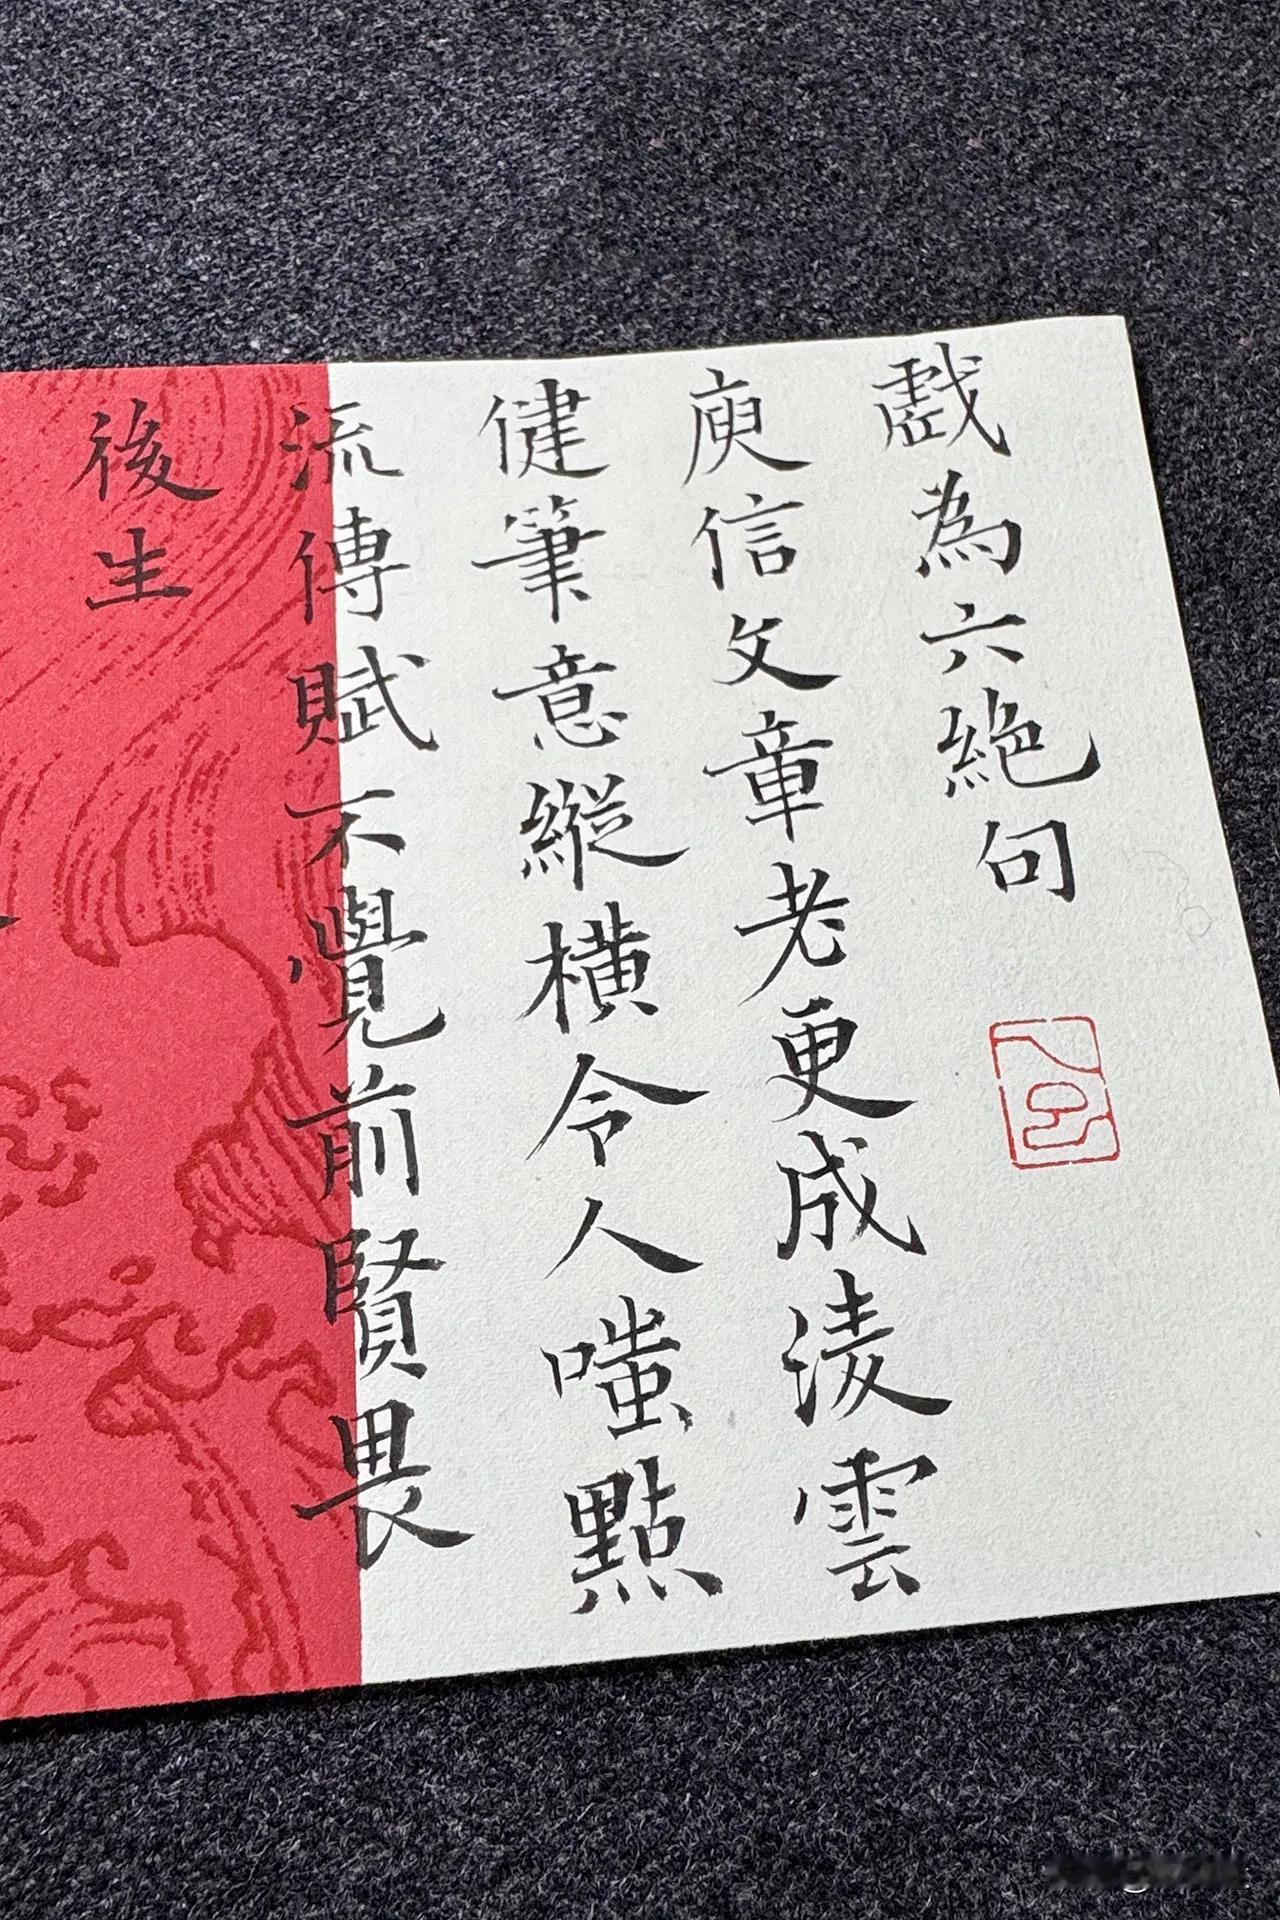 戲為六絶句
庾信文章老更成淩雲
健筆意縱橫令人嗤點
流傳賦不覺前賢畏
後生